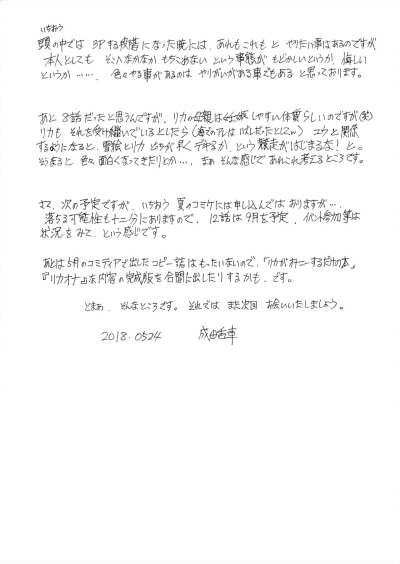 いちおう
頭の中では 3Pする段階になった暁には、あれもこれもと やりたい事はあるのですが
本人としても そこへなかなか もちこめない という事態が もどかしいというか、悔しい
というか……、色々やる事があるのは やりがいがある事でもあると思っております。
あと 8話だったと思うんですが、リカの母親は しやすい体質らしいのですが(笑)
リカも それを受け継いでいるとしたら ユウと関係
するようになると、雪絵とリカ どちらが早くデキるか、という競走がはじまるな！と。
そうなると 色々面白くなってきたりとか…、まぁ そんな感じで あれこれ考えるところです。
さて、次の予定ですが、いちおう 夏のコミケには申し込んではありますが…、
落ちる可能性も十二分にありますので、12話は9月を予定、イベント参加等は
状況をみて、という感じです。
あとは5月のコミティアで出したコピー誌はもったいないので、「リカがオナニーするだけの本」
『リカオナ』な内容の完成版を合間に出したりするかも、です。
とまぁ、そんなところです。それでは また次回 お会いいたしましょう。
2018.0524 成田香車